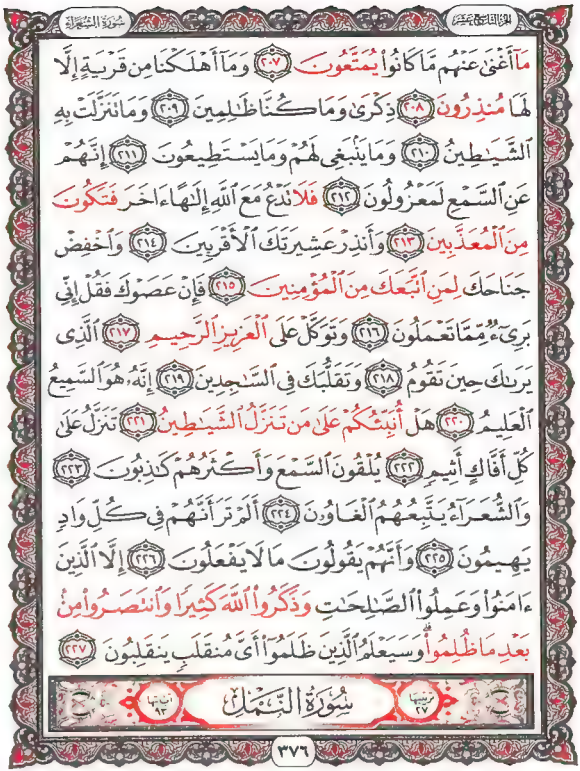 الجزء التاسع عشر سورة الشعراء
مَآ أَغْنَىٰ عَنْهُم مَّا كَانُوا۟ يُمَتَّعُونَ ٢٠٧ وَمَآ أَهْلَكْنَا مِن قَرْيَةٍ إِلَّا
لَهَا مُنذِرُونَ ٢٠٨ ذِكْرَىٰ وَمَا كُنَّا ظَٰلِمِينَ ٢٠٩ وَمَا تَنَزَّلَتْ بِهِ
ٱلشَّيَٰطِينُ ٢١٠ وَمَا يَنۢبَغِى لَهُمْ وَمَا يَسْتَطِيعُونَ ٢١١ إِنَّهُمْ
عَنِ ٱلسَّمْعِ لَمَعْزُولُونَ ٢١٢ فَلَا تَدْعُ مَعَ ٱللَّهِ إِلَٰهًا ءَاخَرَ فَتَكُونَ
مِنَ ٱلْمُعَذَّبِينَ ٢١٣ وَأَنذِرْ عَشِيرَتَكَ ٱلْأَقْرَبِينَ ٢١٤ وَٱخْفِضْ
جَنَاحَكَ لِمَنِ ٱتَّبَعَكَ مِنَ ٱلْمُؤْمِنِينَ ٢١٥ فَإِنْ عَصَوْكَ فَقُلْ إِنِّى
بَرِىٓءٌ مِّمَّا تَعْمَلُونَ ٢١٦ وَتَوَكَّلْ عَلَى ٱلْعَزِيزِ ٱلرَّحِيمِ ٢١٧ ٱلَّذِى
يَرَىٰكَ حِينَ تَقُومُ ٢١٨ وَتَقَلُّبَكَ فِى ٱلسَّٰجِدِينَ ٢١٩ إِنَّهُۥ هُوَ ٱلسَّمِيعُ
ٱلْعَلِيمُ ٢٢٠ هَلْ أُنَبِّئُكُمْ عَلَىٰ مَن تَنَزَّلُ ٱلشَّيَٰطِينُ ٢٢١ تَنَزَّلُ عَلَىٰ
كُلِّ أَفَّاكٍ أَثِيمٍ ٢٢٢ يُلْقُونَ ٱلسَّمْعَ وَأَكْثَرُهُمْ كَٰذِبُونَ ٢٢٣
وَٱلشُّعَرَآءُ يَتَّبِعُهُمُ ٱلْغَاوُۥنَ ٢٢٤ أَلَمْ تَرَ أَنَّهُمْ فِى كُلِّ وَادٍ
يَهِيمُونَ ٢٢٥ وَأَنَّهُمْ يَقُولُونَ مَا لَا يَفْعَلُونَ ٢٢٦ إِلَّا ٱلَّذِينَ
ءَامَنُوا۟ وَعَمِلُوا۟ ٱلصَّٰلِحَٰتِ وَذَكَرُوا۟ ٱللَّهَ كَثِيرًا وَٱنتَصَرُوا۟ مِنۢ
بَعْدِ مَا ظُلِمُوا۟ ۗ وَسَيَعْلَمُ ٱلَّذِينَ ظَلَمُوٓا۟ أَىَّ مُنقَلَبٍ يَنقَلِبُونَ ٢٢٧
ترتيبها ٢٧ سُورَةُ النَّمْلِ آياتها ٩٣
٣٧٦